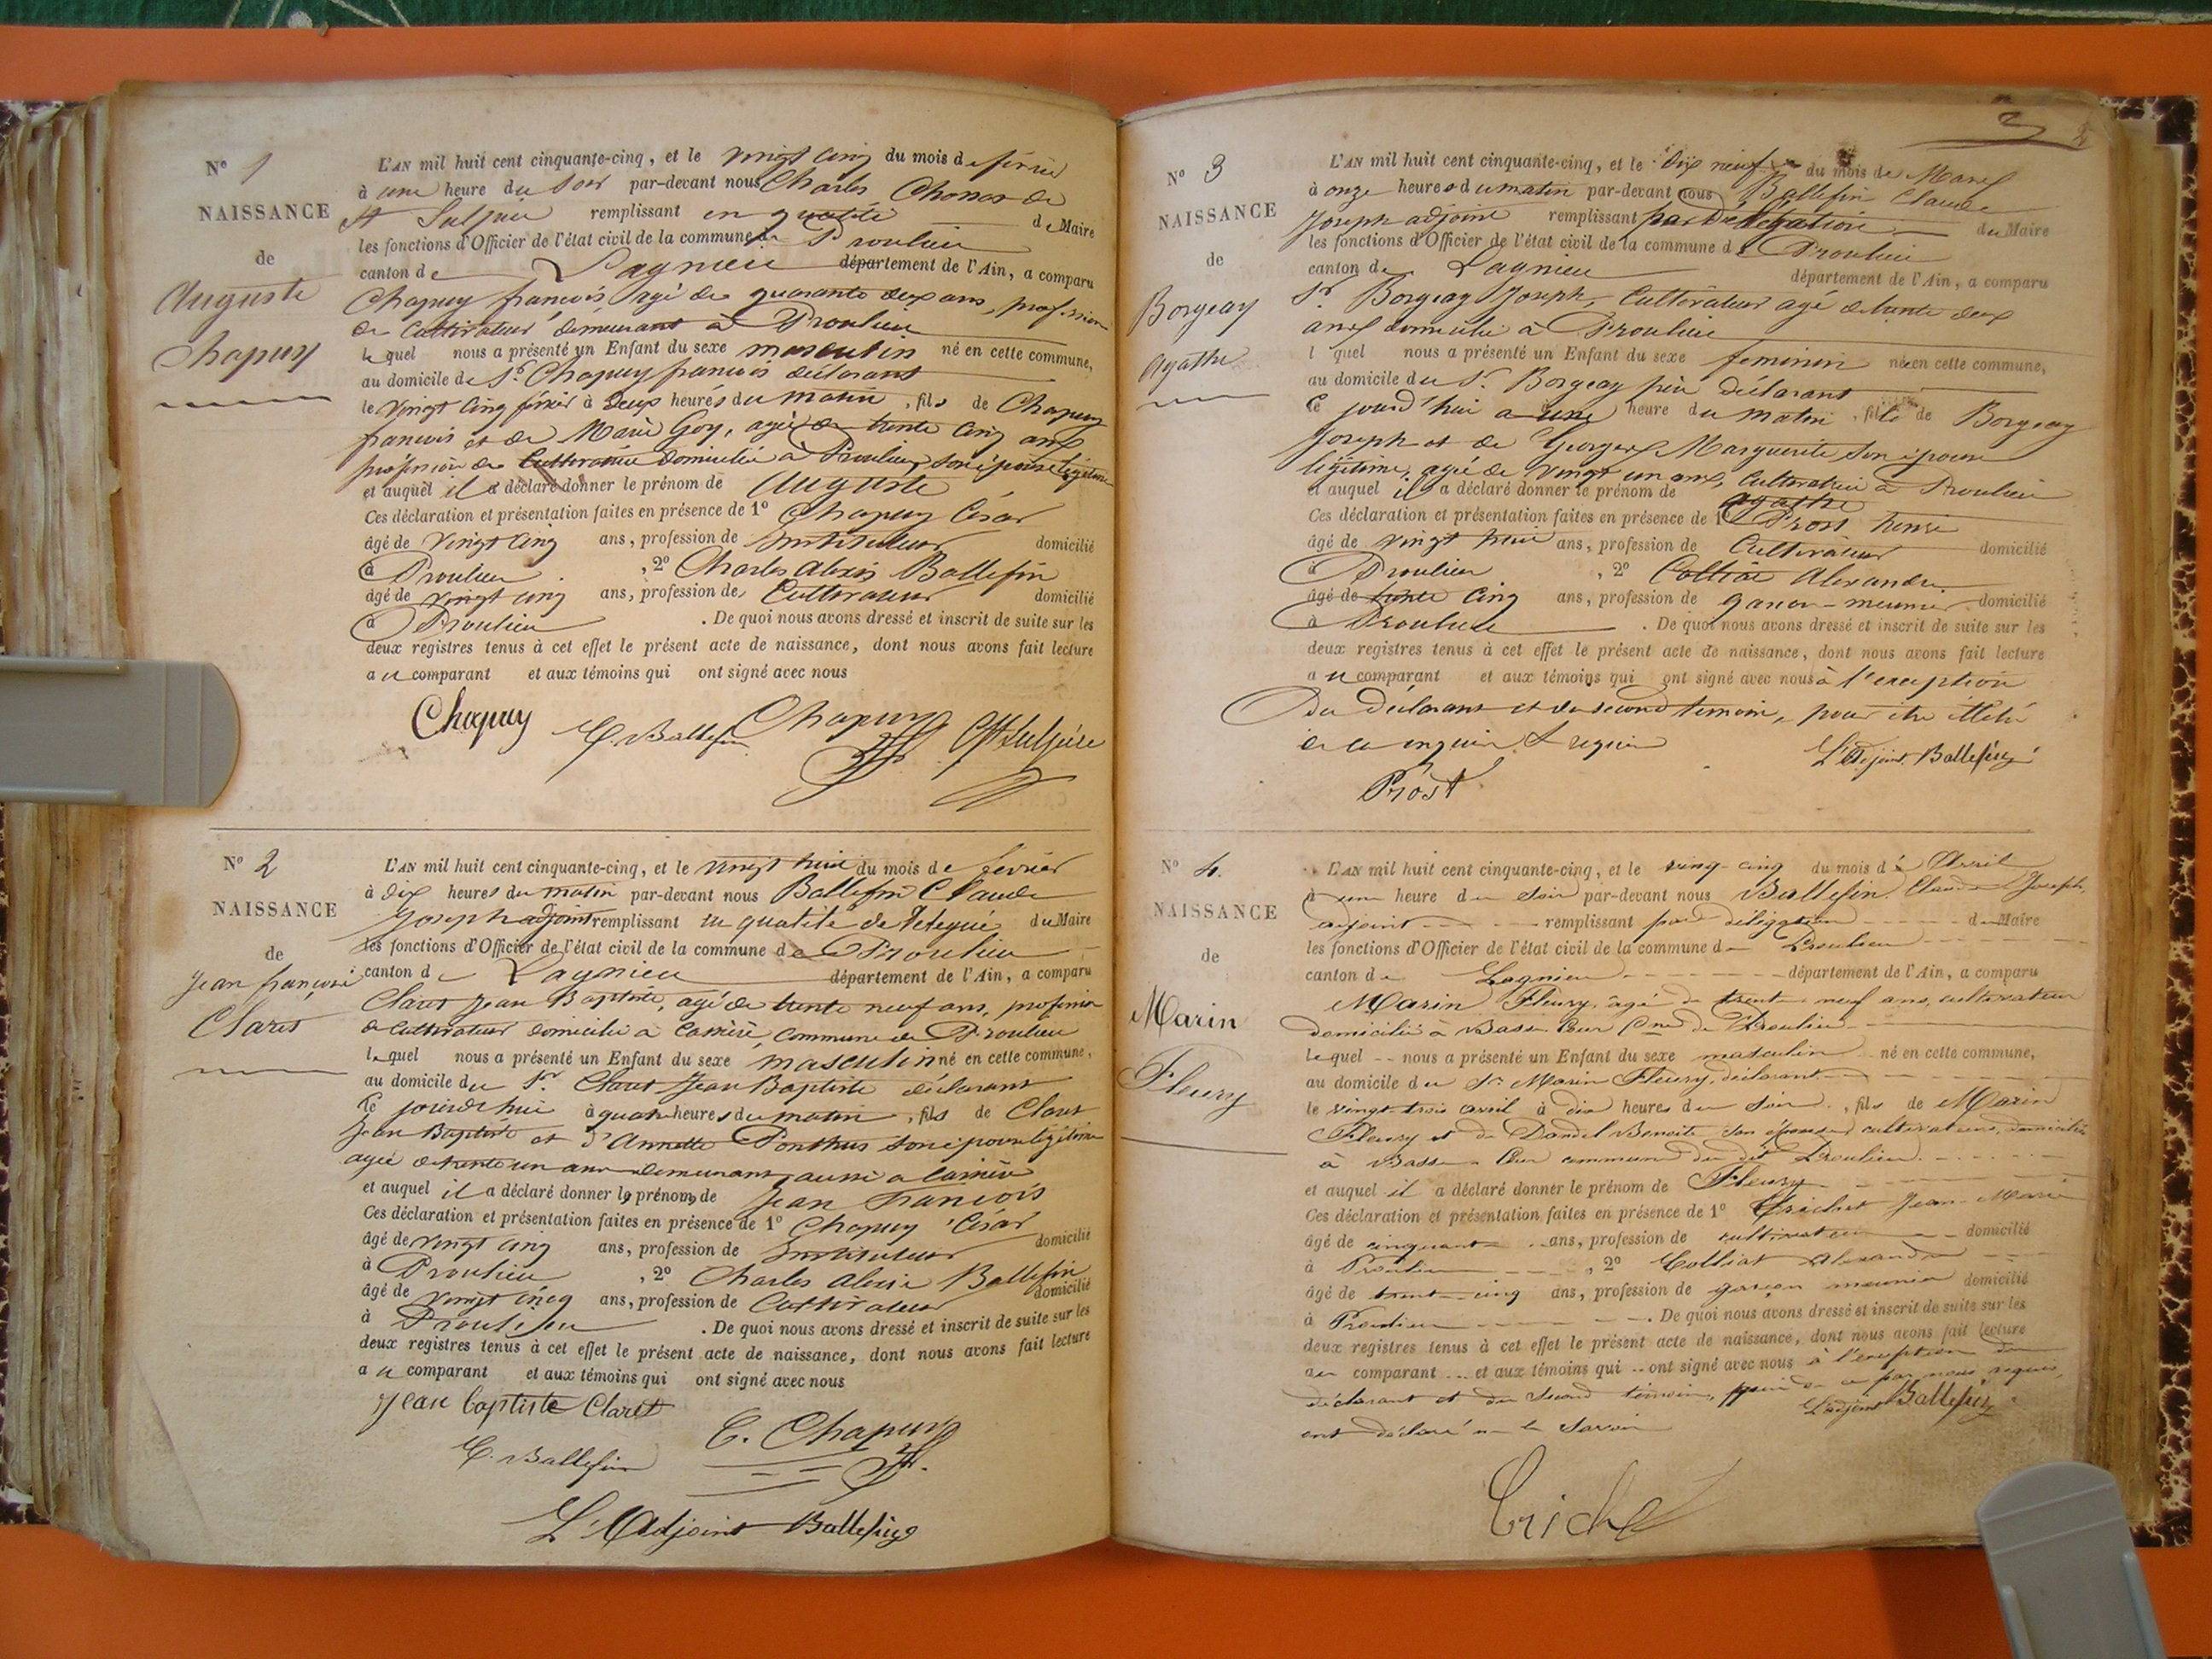 N° 1
NAISSANCE
de
Auguste
Chapuy
L'AN mil huit cent cinquante-cinq, et le vingt cinq du mois de février
à une heure du soir par-devant nous Charles Chonas de
St Sulpice remplissant en qualité de Maire
les fonctions d'Officier de l'état civil de la commune de Proulieu
canton de Lagnieu département de l'Ain, a comparu
Chapuy françois agé de quarante deux ans, profession
de Cultivateur demeurant à Proulieu
lequel nous a présenté un Enfant du sexe masculin né en cette commune,
au domicile de Sr. Chapuy francois déclarant
le vingt cinq février à deux heures du matin, fils de Chapuy
francois et de Marie Goy, agée de trente cinq ans
profession de Cultivatrice domiciliée à Proulieu, son épouse légitime
et auquel il a déclaré donner le prénom de Auguste
Ces déclaration et présentation faites en présence de 1° Chapuy César
âgé de vingt cinq ans, profession de Instituteur domicilié
à Proulieu, 2° Charles Alexis Ballefin
âgé de vingt cinq ans, profession de Cultivateur domicilié
à Proulieu. De quoi nous avons dressé et inscrit de suite sur les
deux registres tenus à cet effet le présent acte de naissance, dont nous avons fait lecture
au comparant et aux témoins qui ont signé avec nous
Chapuy C. Ballefin Chapuy Ch St Sulpice
N° 2
NAISSANCE
de
Jean françois
Claret
L'AN mil huit cent cinquante-cinq, et le vingt huit du mois de février
à dix heures du matin par-devant nous Ballefin Claude
Joseph adjoint remplissant en qualité de délégué du Maire
les fonctions d'Officier de l'état civil de la commune de Proulieu
canton de Lagnieu département de l'Ain, a comparu
Claret Jean Baptiste, agé de trente neuf ans, profession
de cultivateur domicilié a commune de Proulieu
lequel nous a présenté un Enfant du sexe masculin né en cette commune,
au domicile du Sr. Claret Jean Baptiste déclarant
le jourd'hui à quatre heures du matin, fils de Claret
Jean Baptiste et d'Annette Ponthus son épouse légitime
agée de trente un ans demeurant aussi a
et auquel il a déclaré donner le prénom de Jean Francois
Ces déclaration et présentation faites en présence de 1° Chapuy César
âgé de vingt cinq ans, profession de Instituteur domicilié
à Proulieu, 2° Charles Alexis Ballefin
âgé de vingt cinq ans, profession de Cultivateur domicilié
à Proulieu. De quoi nous avons dressé et inscrit de suite sur les
deux registres tenus à cet effet le présent acte de naissance, dont nous avons fait lecture
au comparant et aux témoins qui ont signé avec nous
Jean baptiste Claret
C. Ballefin C. Chapuy
L'Adjoint Ballefin
2
N° 3
NAISSANCE
de
Borgeay
Agathe
L'AN mil huit cent cinquante-cinq, et le dix neuf du mois de Mars
à onze heures du matin par-devant nous Ballefin Claude
Joseph adjoint remplissant par Délégation du Maire
les fonctions d'Officier de l'état civil de la commune de Proulieu
canton de Lagnieu département de l'Ain, a comparu
Sr. Borgeay Joseph, Cultivateur agé de trente deux
ans domicilié à Proulieu
lquel nous a présenté un Enfant du sexe feminin née en cette commune,
au domicile du Sr. Borgeay père déclarant
ce jourd'hui a une heure du matin, fille de Borgeay
Joseph et de Georges Marguerite son épouse
légitime, agée de vingt un ans, Cultivatrice à Proulieu
et auquel il a déclaré donner le prénom de Agathe
Ces déclaration et présentation faites en présence de 1° Prost
âgé de vingt huit ans, profession de Cultivateur domicilié
à Proulieu, 2° Colliat Alexandre
âgé de trente cinq ans, profession de garçon-meunier domicilié
à Proulieu. De quoi nous avons dressé et inscrit de suite sur les
deux registres tenus à cet effet le présent acte de naissance, dont nous avons fait lecture
au comparant et aux témoins qui ont signé avec nous à l'exception
Du déclarant et du second temoin, pour être illétré
de ce enquis & requis
Prost L'Adjoint Ballefin
N° 4.
NAISSANCE
de
Marin
Fleury
L'AN mil huit cent cinquante-cinq, et le vingt-cinq du mois d'Avril
à une heure du soir par-devant nous Ballefin Claude Joseph,
adjoint remplissant par délégation du Maire
les fonctions d'Officier de l'état civil de la commune de Proulieu
canton de Lagnieu département de l'Ain, a comparu
Marin Fleury, âgé de trente neuf ans, cultivateur
domicilié à Basse Cour Cne de Proulieu
lequel nous a présenté un Enfant du sexe masculin né en cette commune,
au domicile du Sr Marin Fleury, déclarant
le vingt-trois avril à dix heures du soir, fils de Marin
Fleury et de Dandel Benoite son épouse cultivateurs, domiciliés
à Basse Cour commune du dit Proulieu
et auquel il a déclaré donner le prénom de Fleury
Ces déclaration et présentation faites en présence de 1° Jean-Marie
âgé de cinquante ans, profession de cultivateur domicilié
à Proulieu, 2° Colliat Alexandre
âgé de trente-cinq ans, profession de garçon meunier domicilié
à Proulieu. De quoi nous avons dressé et inscrit de suite sur les
deux registres tenus à cet effet le présent acte de naissance, dont nous avons fait lecture
au comparant et aux témoins qui ont signé avec nous à l'exception du
déclarant et du second témoin, qui de ce par nous requis,
ont déclaré ne le savoir L'adjoint Ballefin